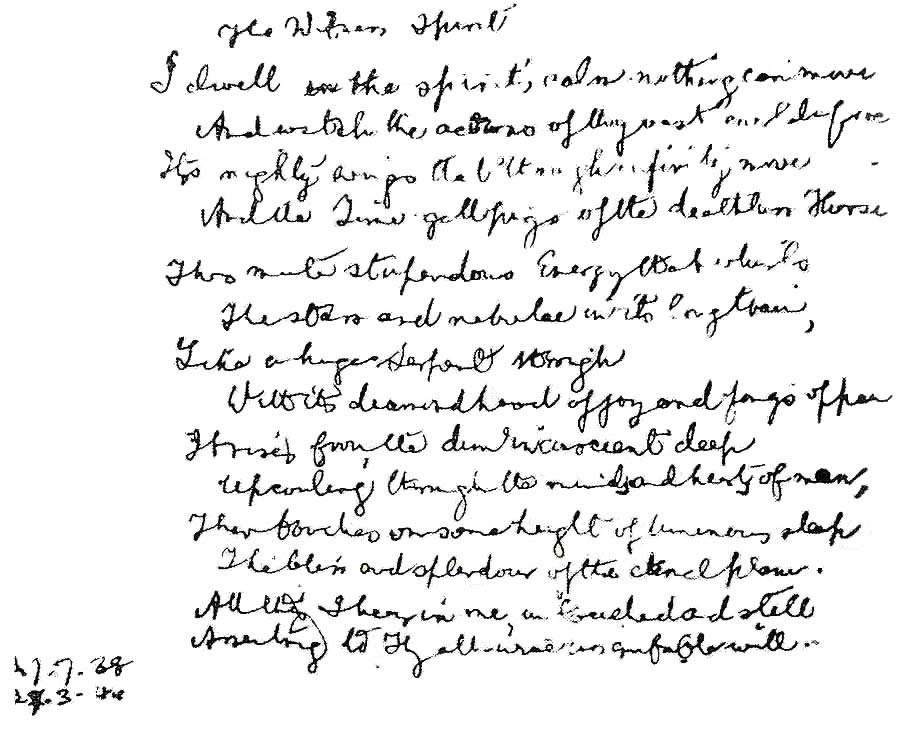 The Witness Spirit
I dwell in the spirit's calm nothing can move
And watch the actions of thy vast force
Its mighty wings that through infinity move
And the Time gallopings of the deathless Horse
This mute stupendous Energy that whirls
The stars and nebulae in its long train,
Like a huge Serpent through
With its diamond hood of joy and fangs of pain
It rises from the dim inconscient deep
Upcoiling through the minds and hearts of men,
Then touches on some height of luminous sleep
The bliss and splendour of the eternal plane.
All this I bear in me, untouched and still
Assenting to Thy all-wise inscrutable will.
7.38
3.44